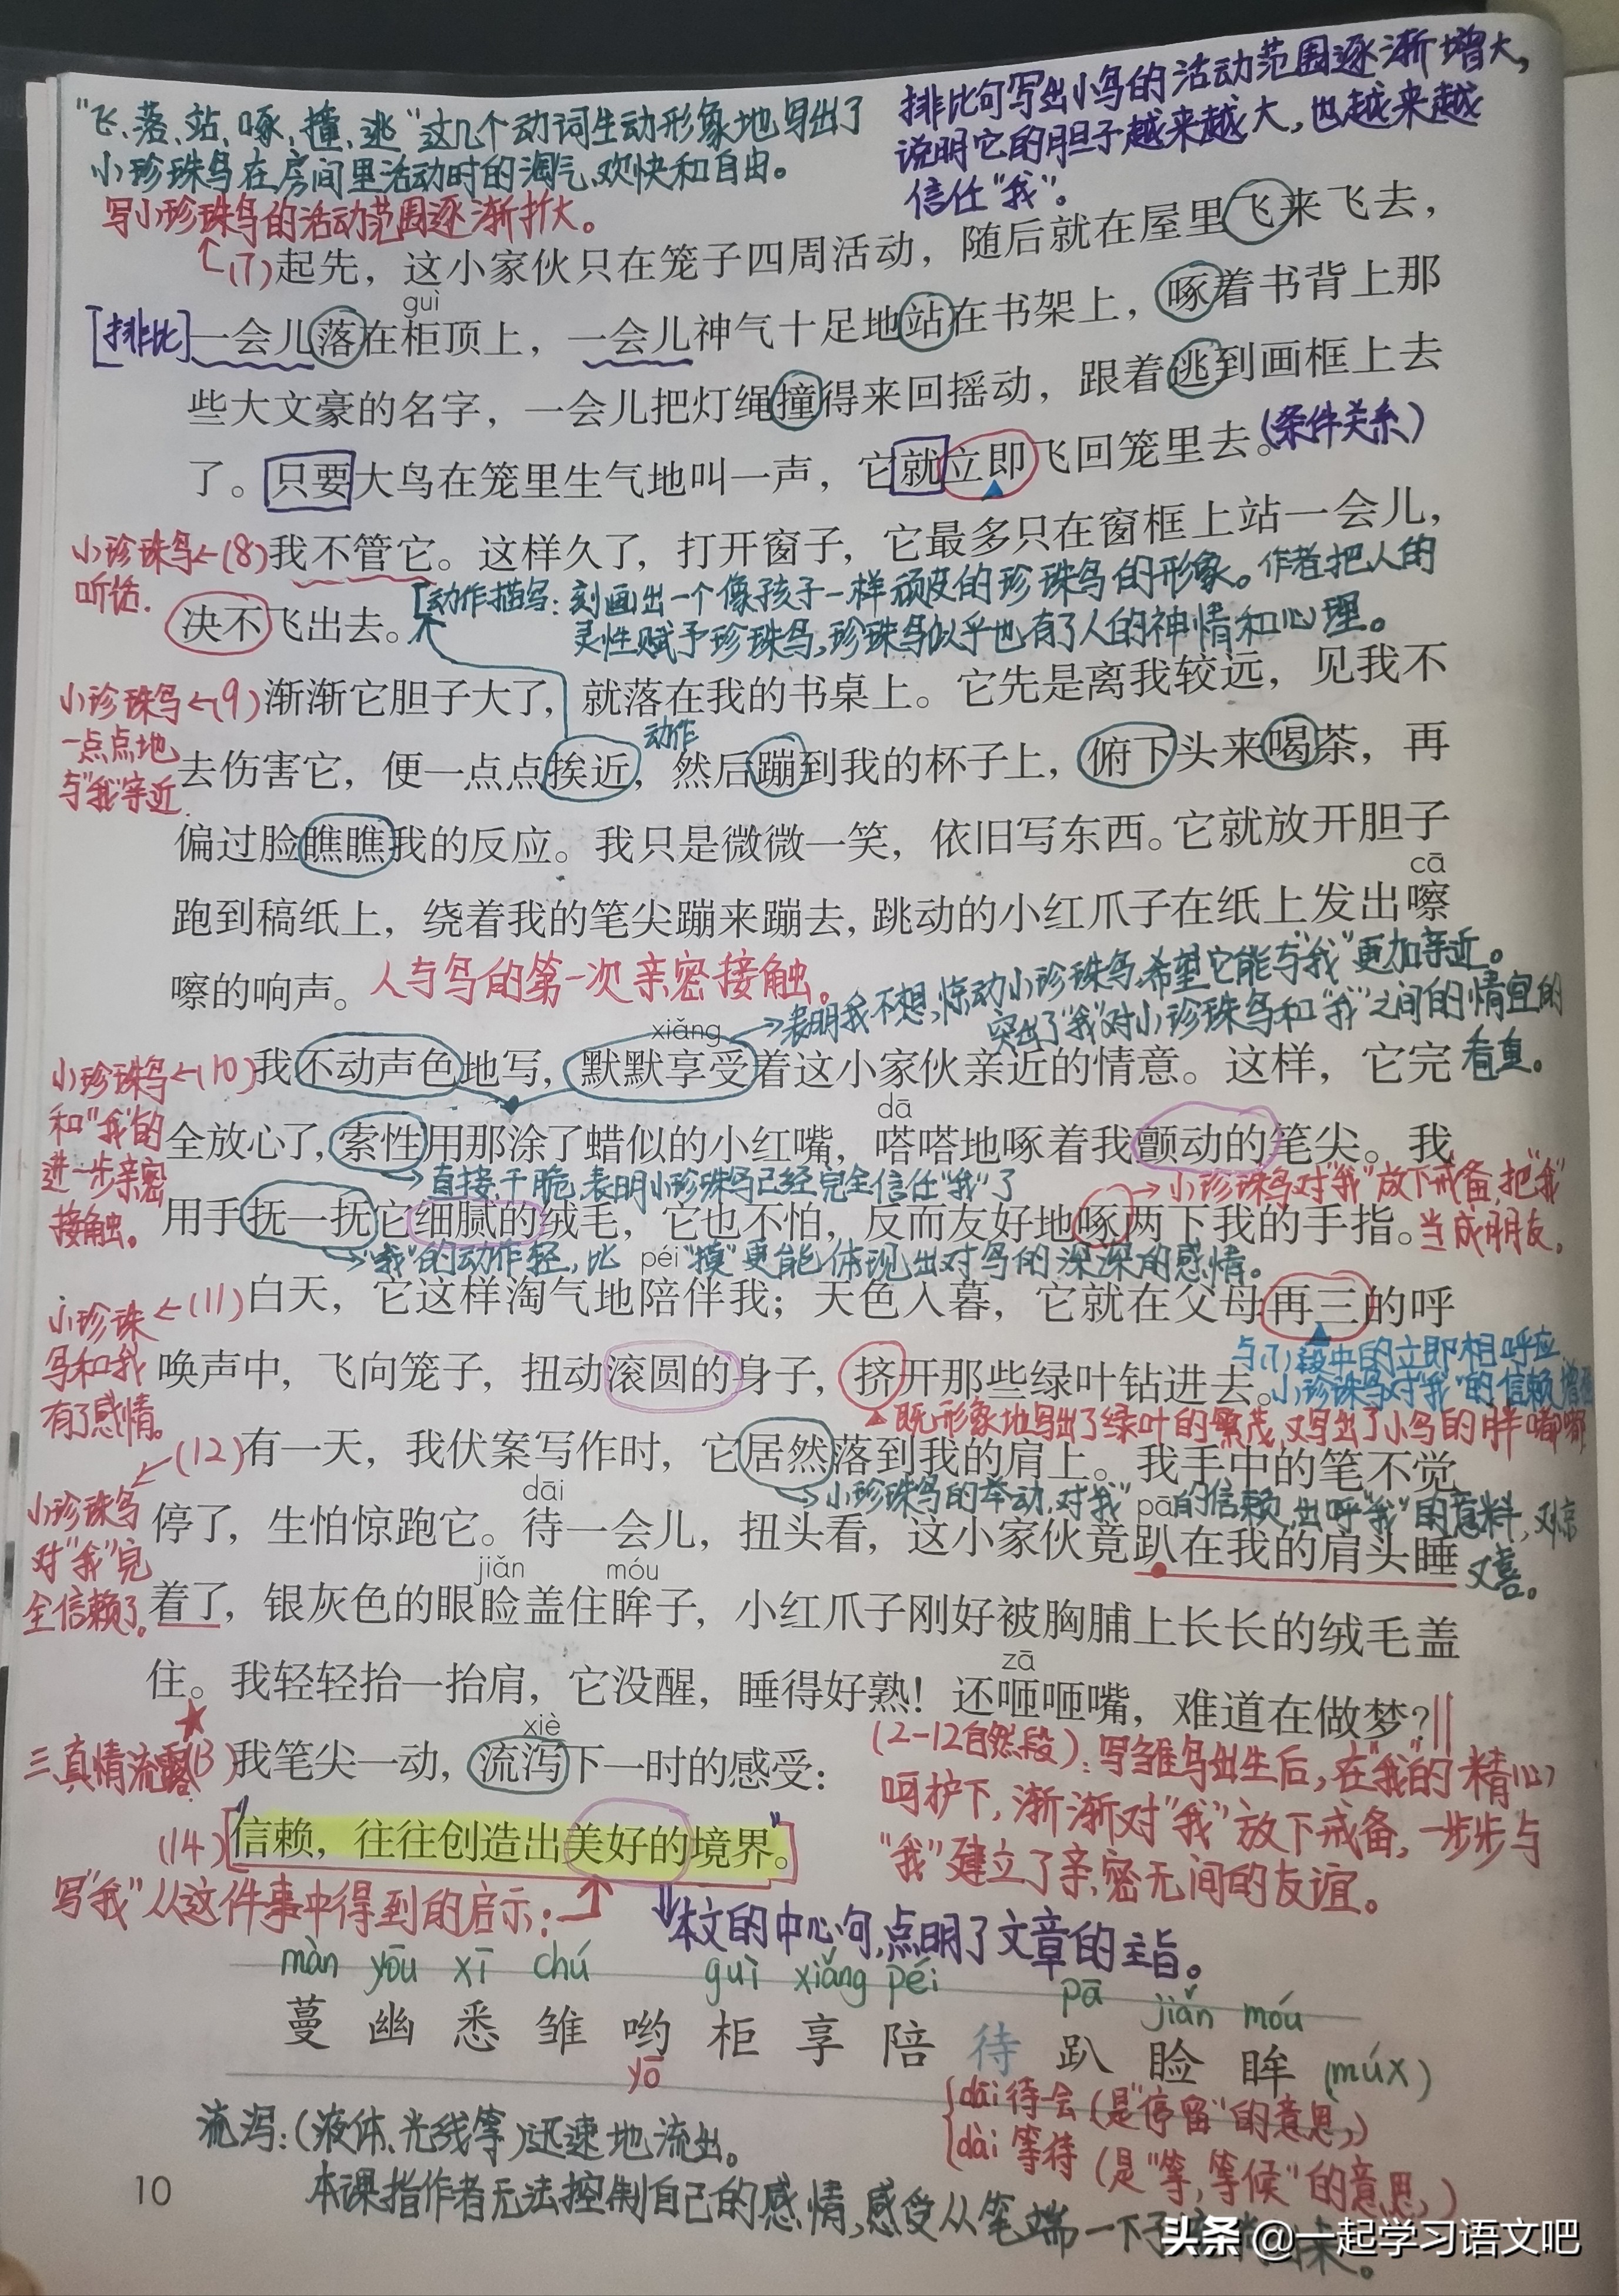 "飞、落、站、啄、撞、逃"这几个动词生动形象地写出了
小珍珠鸟在房间里活动时的淘气、欢快和自由。
排比句写出小鸟的活动范围逐渐增大,
说明它的胆子越来越大,也越来越
信任"我"。
写小珍珠鸟的活动范围逐渐扩大。
(7)起先，这小家伙只在笼子四周活动，随后就在屋里飞来飞去，
guì
[排比]一会儿落在柜顶上，一会儿神气十足地站在书架上，啄着书背上那
些大文豪的名字，一会儿把灯绳撞得来回摇动，跟着逃到画框上去
了。只要大鸟在笼里生气地叫一声，它就立即飞回笼里去。(条件关系)
小珍珠鸟←(8)我不管它。这样久了，打开窗子，它最多只在窗框上站一会儿，
听话.
决不飞出去。
[动作描写:刻画出一个像孩子一样顽皮的珍珠鸟的形象。作者把人的
灵性赋予珍珠鸟,珍珠鸟似乎也有了人的神情和心理。
小珍珠鸟←(9)渐渐它胆子大了，就落在我的书桌上。它先是离我较远，见我不
一点点地
与"我"亲近.
动作
去伤害它，便一点点挨近，然后蹦到我的杯子上，俯下头来喝茶，再
偏过脸瞧瞧我的反应。我只是微微一笑，依旧写东西。它就放开胆子
cā
跑到稿纸上，绕着我的笔尖蹦来蹦去,跳动的小红爪子在纸上发出嚓
嚓的响声。人与鸟的第一次亲密接触。
→表明我不想惊动小珍珠鸟,希望它能与"我"更加亲近。
突出了"我"对小珍珠鸟和"我"之间的情宜的
看重。
xiǎng
小珍珠鸟←(10)我不动声色地写，默默享受着这小家伙亲近的情意。这样，它完
和"我"的
进一步亲密
接触。
dā
全放心了，索性用那涂了蜡似的小红嘴，嗒嗒地啄着我颤动的笔尖。我
→直接,干脆,表明小珍珠鸟已经完全信任"我"了
→小珍珠鸟对"我"放下戒备,把"我"
当成朋友。
用手抚一抚它细腻的绒毛，它也不怕，反而友好地啄两下我的手指。
→"我"的动作轻,比"摸"更能体现出对鸟的深深的感情。
péi
小珍珠←(11)白天，它这样淘气地陪伴我；天色入暮，它就在父母再三的呼
鸟和我
有了感情。
与(7)段中的立即相呼应
唤声中，飞向笼子，扭动滚圆的身子，挤开那些绿叶钻进去。
小珍珠鸟对"我"的信赖
既形象地写出了绿叶的繁茂,又写出了小鸟的胖嘟嘟
(12)有一天，我伏案写作时，它居然落到我的肩上。我手中的笔不觉
→小珍珠鸟的举动,对"我"的信赖,出乎"我"的意料,又惊
又喜。
小珍珠鸟
对"我"完
全信赖了。
dāi pā
停了，生怕惊跑它。待一会儿，扭头看，这小家伙竟趴在我的肩头睡
jiǎn móu
着了，银灰色的眼睑盖住眸子，小红爪子刚好被胸脯上长长的绒毛盖
zā
住。我轻轻抬一抬肩，它没醒，睡得好熟！还咂咂嘴，难道在做梦？
xiè
三.真情流露(13)我笔尖一动，流泻下一时的感受：
(2-12自然段):写雏鸟出生后,在"我"的精心
呵护下,渐渐对"我"放下戒备,一步步与
"我"建立了亲密无间的友谊。
(14)"信赖，往往创造出美好的境界"。
写"我"从这件事中得到的启示:
本文的中心句,点明了文章的主旨。
màn yōu xī chú guì xiǎng péi pā jiǎn móu
蔓 幽 悉 雏 哟 柜 享 陪 待 趴 睑 眸 (múx)
yō
dāi待一会(是"停留"的意思,)
dài等待(是"等,等候"的意思,)
流泻:(液体、光线等)迅速地流出。
本课指作者无法控制自己的感情,感受从笔端一下子
10
头条 @一起学习语文吧